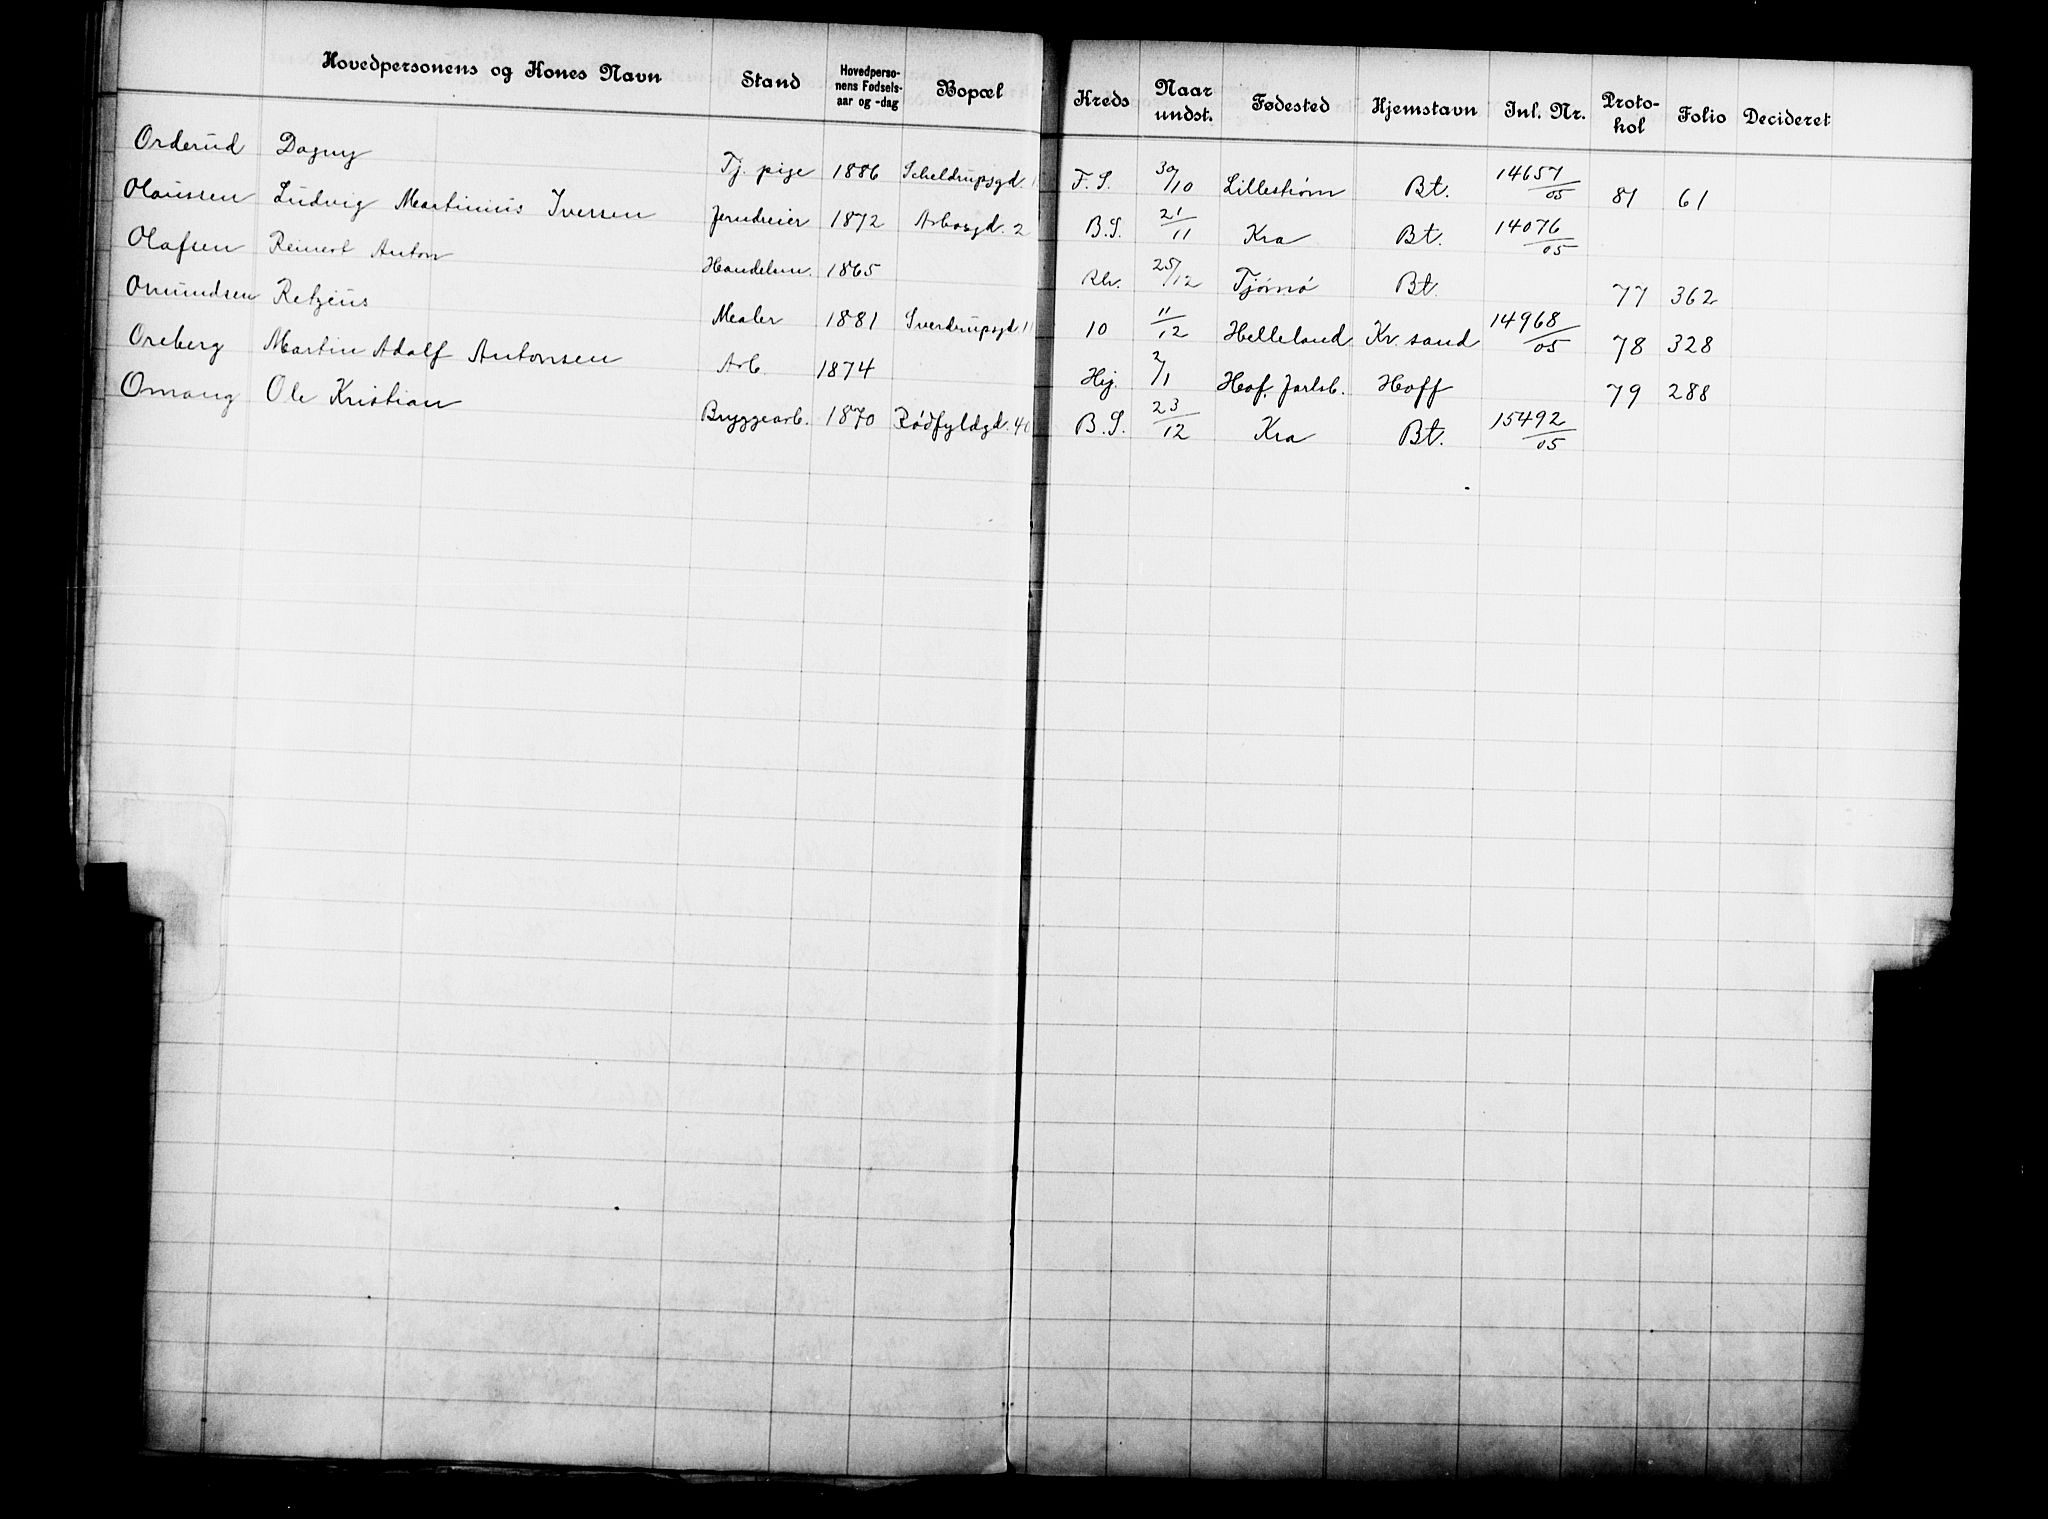 Hovedpersonens og Kones Navn Stand Hovedperso-nens Fødsels-aar og -dag Bopæl Kreds Naar undst. Fødested Hjemstavn Inl. Nr. Proto-kol Folio Decideret
Orderud Dagny Tj. pige 1886 Scheldrupsgd. F. S. 30/10 Lillestrøm Bt. 14657/05 81 61
Olaussen Ludvig Martinius Iversen Jerndreier 1872 Arbosgd. 2 B. S. 21/11 Kra Bt. 14076/05
Olafsen Reinert Anton Handelsm. 1865 25/12 Tjømø Bt. 77 362
Omundsen Retzius Maler 1881 Sverdrupsgd. 11 10 11/12 Helleland Kr. sand 14968/05 78 328
Oreberg Martin Adolf Antonsen Arb. 1874 Hej. 2/1 Hof. Jarlsb. Hoff 79 288
Omang Ole Kristian Bryggearb. 1870 Rødfyldgd. 40 B. S. 23/12 Kra Bt. 15492/05